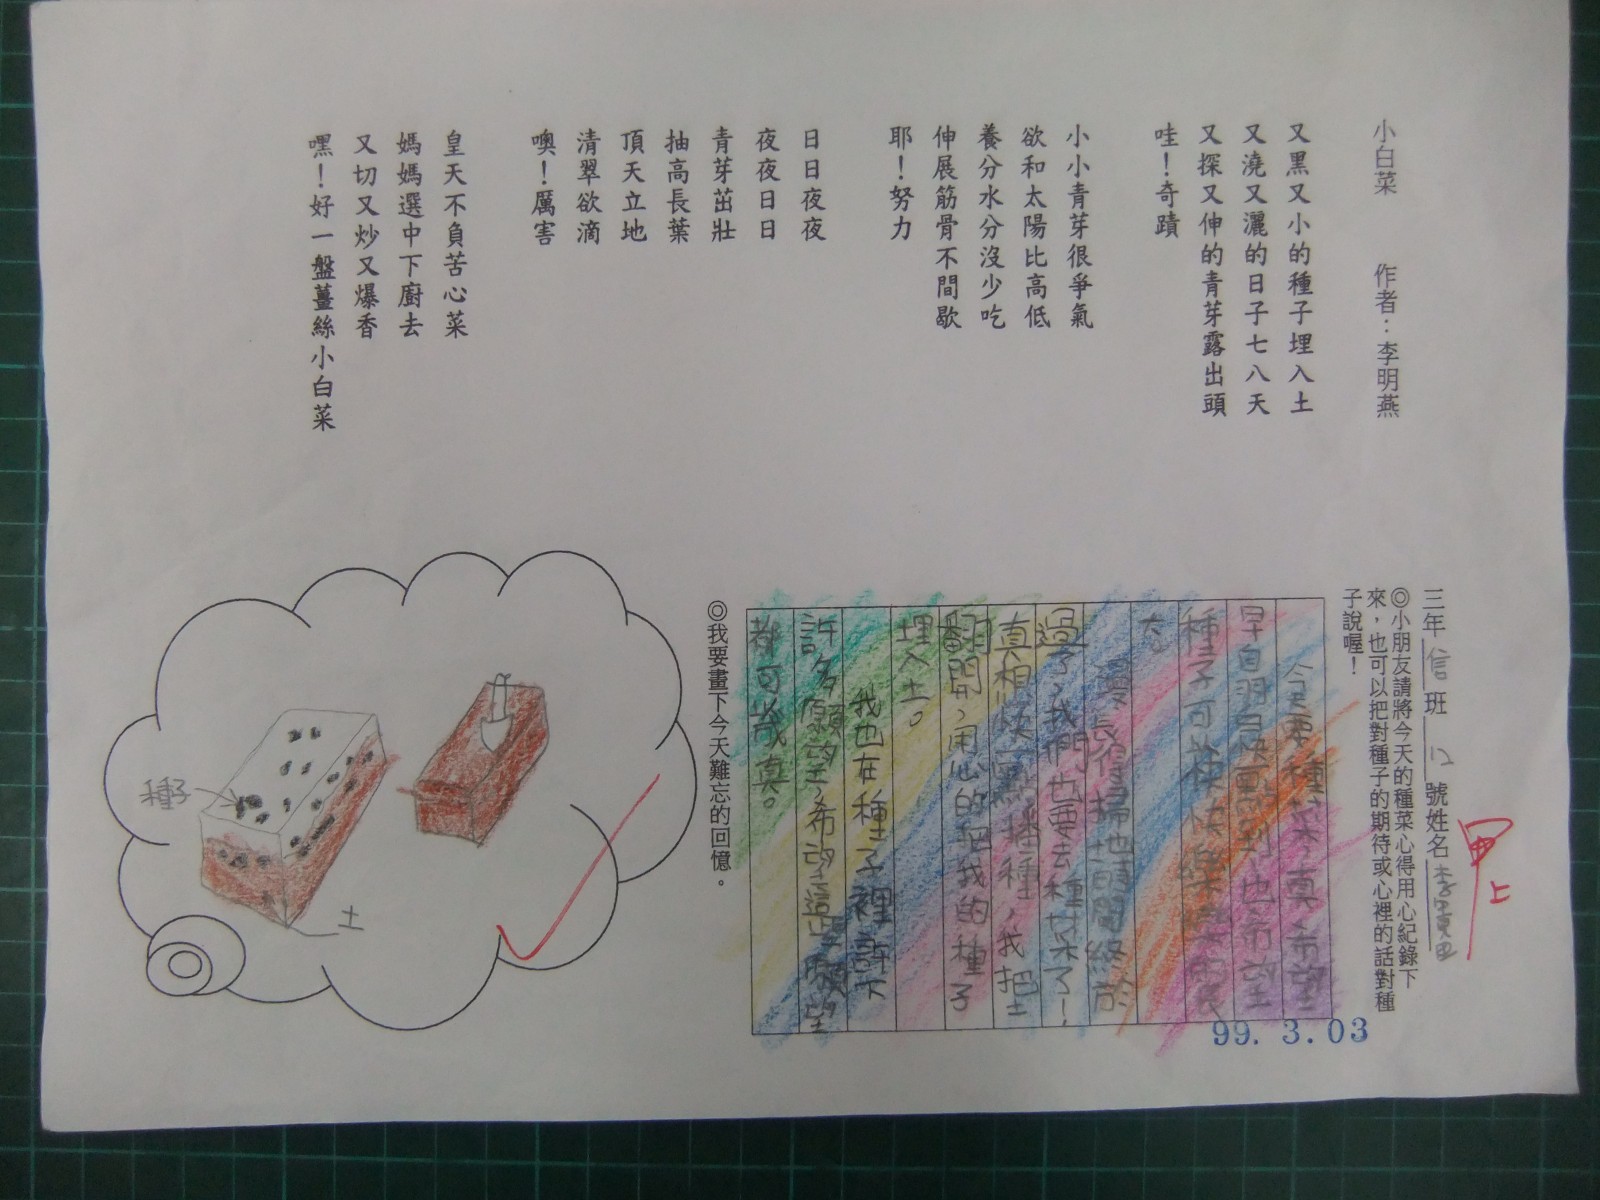 小白菜　作者：李明燕
又黑又小的種子埋入土
又澆又灑的日子七八天
又探又伸的青芽露出頭
哇！奇蹟
小小青芽很爭氣
欲和太陽比高低
養分水分沒少吃
伸展筋骨不間歇
耶！努力
日日夜夜
夜夜日日
青芽茁壯
抽高長葉
頂天立地
清翠欲滴
噢！厲害
皇天不負苦心菜
媽媽選中下廚去
又切又炒又爆香
嘿！好一盤薑絲小白菜
甲上
三年信班12號姓名李
◎小朋友請將今天的種菜心得用心紀錄下
來，也可以把對種子的期待或心裡的話對種
子說喔！
今天要種菜，真希望
早自習早快點到，也希望
種子可快快樂樂
漫長得掃地時間終於
過了，我們也要去種菜了！
真相快點播種，我把土
翻開，用心的把我的種子
埋入土。
我也在種子裡許下
許多願望，希望這些願望
都可成真。
99. 3. 03
◎我要畫下今天難忘的回憶。
種子
土